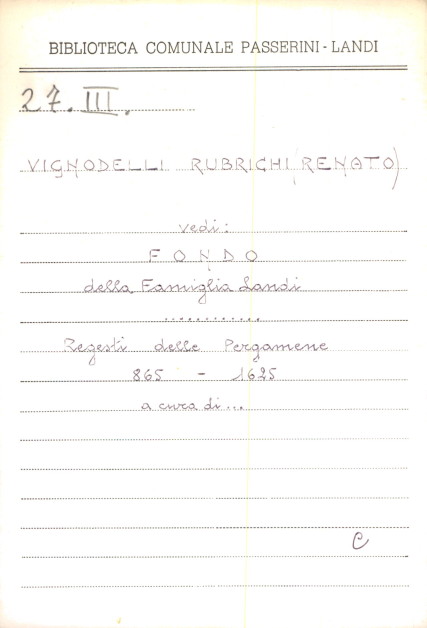 BIBLIOTECA COMUNALE PASSERINI - LANDI
27. III.
VIGNODELLI RUBRICHI (RENATO)
vedi:
FONDO
della Famiglia Landi
............
Regesti delle Pergamene
865 - 1625
a cura di ...
C